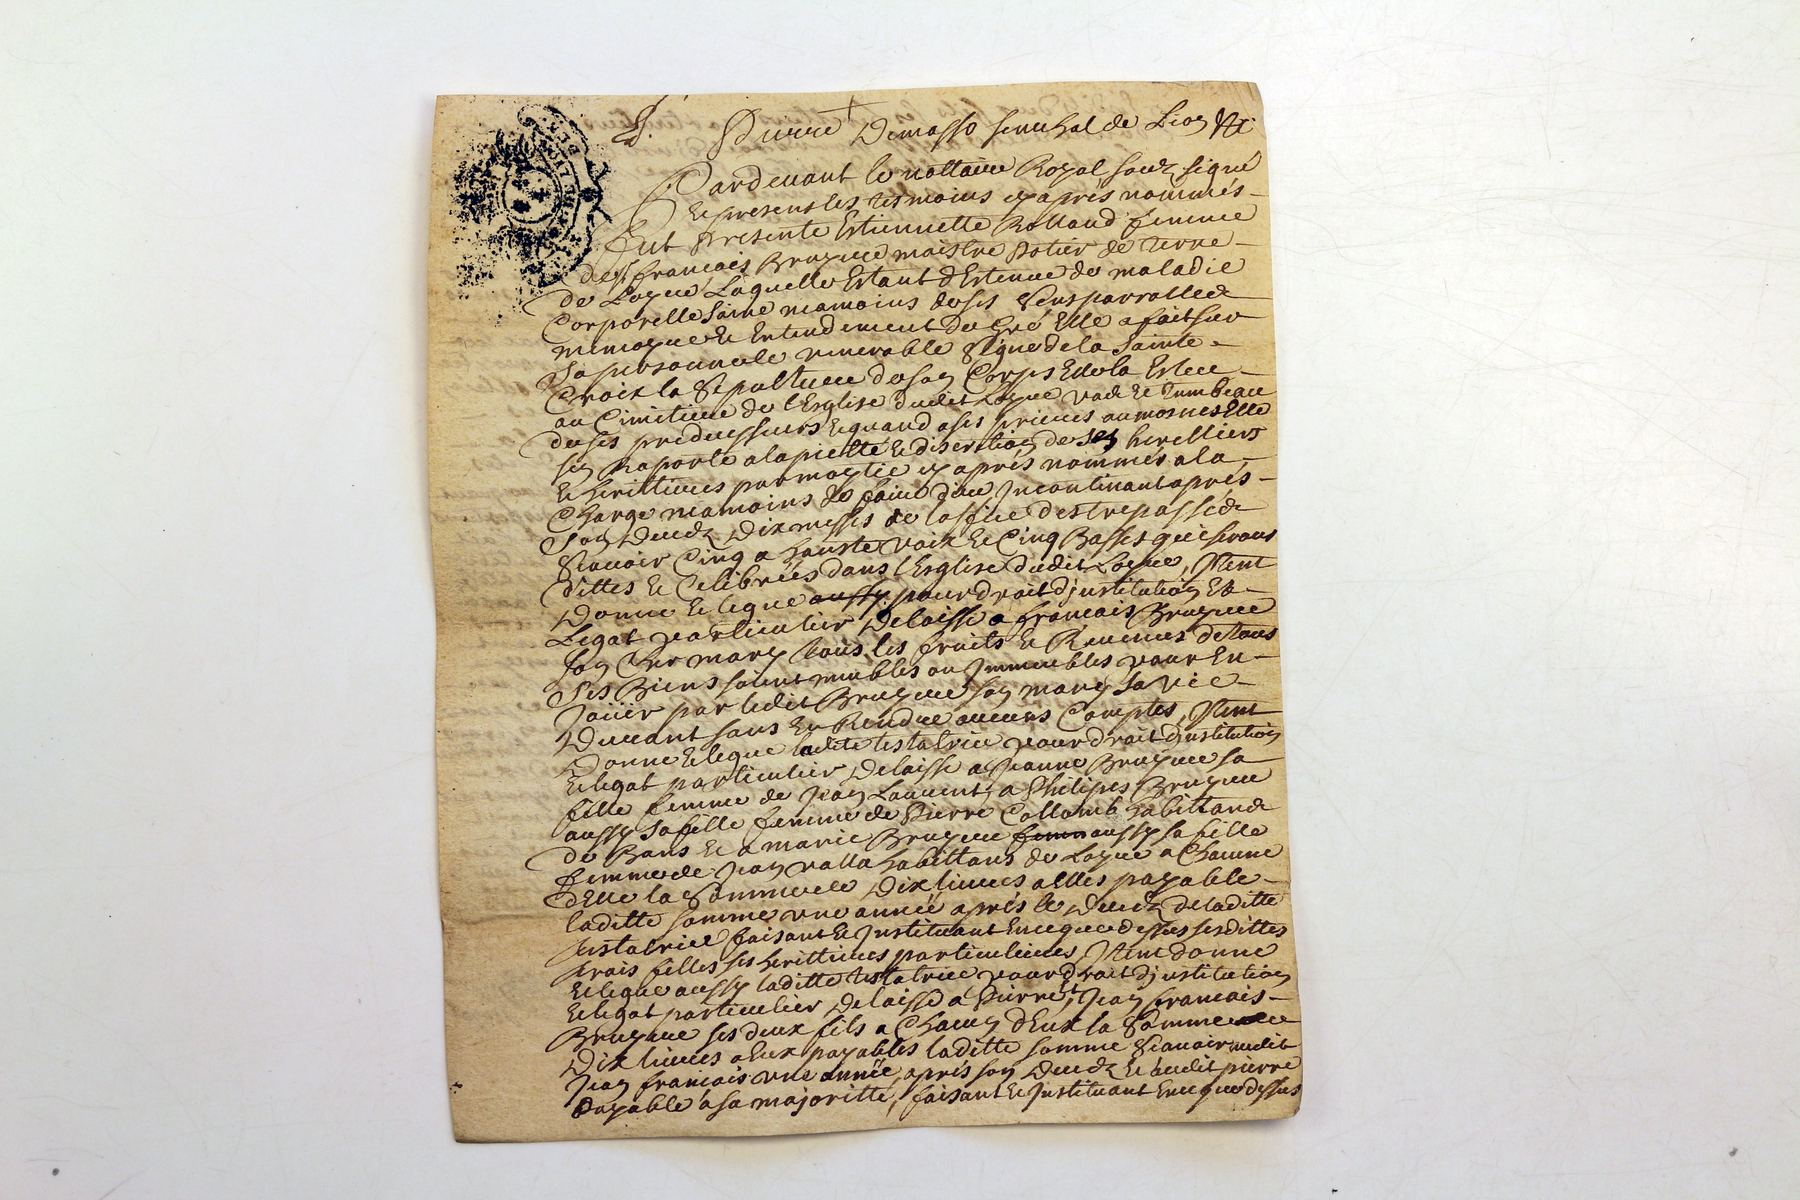 Pierre Demasso senechal de Lion
Pardevant le nottaire Royal souz signé
Et presents les tesmoins cy après nommés
fut presente Estiennette Rolland femme
de francois Bruyere maistre Potier de terre
de Layue Laquelle Estant dEtenue de maladie
Corporelle saine neamoins de ses sens parrolles
memoyre Et Entendement de Gré Elle a fait sur
sa personne le venerable signe de la sainte
Croix la sepulture de son Corps Elle la Eslue
au Cimitiere de l'Esglise dudit Layue vade Et tumbeau
de ses predecesseurs Et quand a ses prieres aumosnes Elle
sen raporte a la piette Et discrettion de ses herettiers
Et herittieres par moytie cy après nommés a la
Charge neamoins de faire dire Incontinant après
son Deces Dix messes de lofice des trepassés
scavoir Cinq a hauste voix Et Cinq Basses qui seront
dittes Et Celibrées dans l'Esglise dudit Layue, Item
Donne Et legue aussy pour droit d'jnstitution Et
Legat particulier Delaisse a francois Bruyere
son Cher mary tous les fruits Et Revenus de tous
ses Biens soient meubles ou Immeubles pour En
Jouir par ledit Bruyere son mary sa vie
Durant sans En Rendre aucuns Comptes, Item
Donne Et legue ladite testatrice pour droit d'jnstitution
Et legat particulier Delaisse a Jeanne Bruyere sa
fille femme de Jean Laurent, a Philipes Bruyere
aussy sa fille femme de Pierre Collomb habittands
de Bans Et a marie Bruyere femm aussy sa fille
femme de Jean valla habittans de Layue a Chacune
dElle la somme de Dix livres a Elles payable
laditte somme vne année après le Deces de laditte
testatrice faisant Et Jnstituant En ce que dessus ses dittes
trois filles ses herittieres particulieres, Item donne
Et legue aussy laditte testatrice pour droit d'jnstitution
Et legat particulier Delaisse a Pierre Et Jean francois
Bruyere ses deux fils a Chacun d'Eux la somme de
Dix livres a Eux payables laditte somme scavoir audit
Jean francois vne année après son Deces Et audit pierre
payable a sa majoritté, faisant Et Jnstituant En ce que dessus